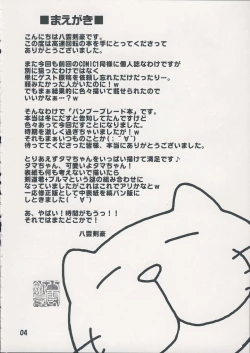 ■まえがき■
こんにちは八雲剣豪です。
この度は高速回転の本を手にとってくださって
ありがとうございました。
また今回も前回のCOMIC1同様に個人誌なわけですが
別に狙ったわけではなく
単にゲスト原稿を依頼し忘れただけだったりー。
頼みたかった人がいたのに!w
でもまぁ結果的に色々描いて楽しめられたので
いいかなぁー?w
そんなわけで「バンブーブレード本」です。
本当は冬にだすと告知してたんですけど
色々あって今回だすことになりました。
時期を激しく過ぎちゃいましたが!w
それもまぁいつものことか(;´∀`)
待っててくださった皆様、本当にありがとうございました。
とりあえずタマちゃんをいっぱい描けて満足です♪
タマちゃん、可愛いよタマちゃん!
表紙も何も考えないで描いたら
剣道着+ブルマという謎の組み合わせに
なっていましたがこれはこれでアリかなとw
一応修正版として中表紙を縞パン版に
しときました(´∀`)
あ、やばい!時間がもうっ!!
それではまたどこかで!
八雲剣豪
04